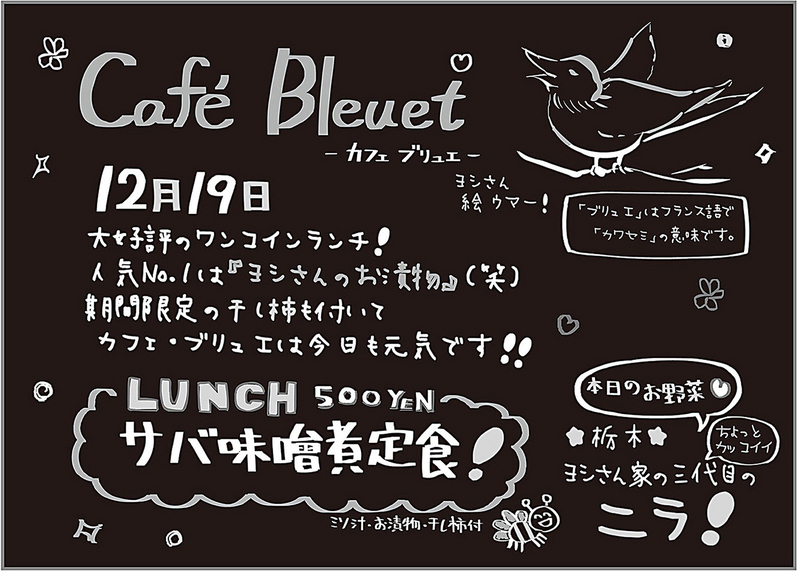 Café Bleuet
- カフェ ブリュエ -
12月19日
ヨシさん
絵ウマー!
「ブリュエ」はフランス語で
「カワセミ」の意味です。
大好評のワンコインランチ!
人気No.1は『ヨシさんのお漬物』(笑)
期間限定の干し柿も付いて
カフェ・ブリュエは今日も元気です!!
LUNCH 500YEN
サバ味噌煮定食!
ミソ汁・お漬物・干し柿付
本日のお野菜
栃木
ちょっと
カッコイイ
ヨシさん家の三代目の
ニラ!